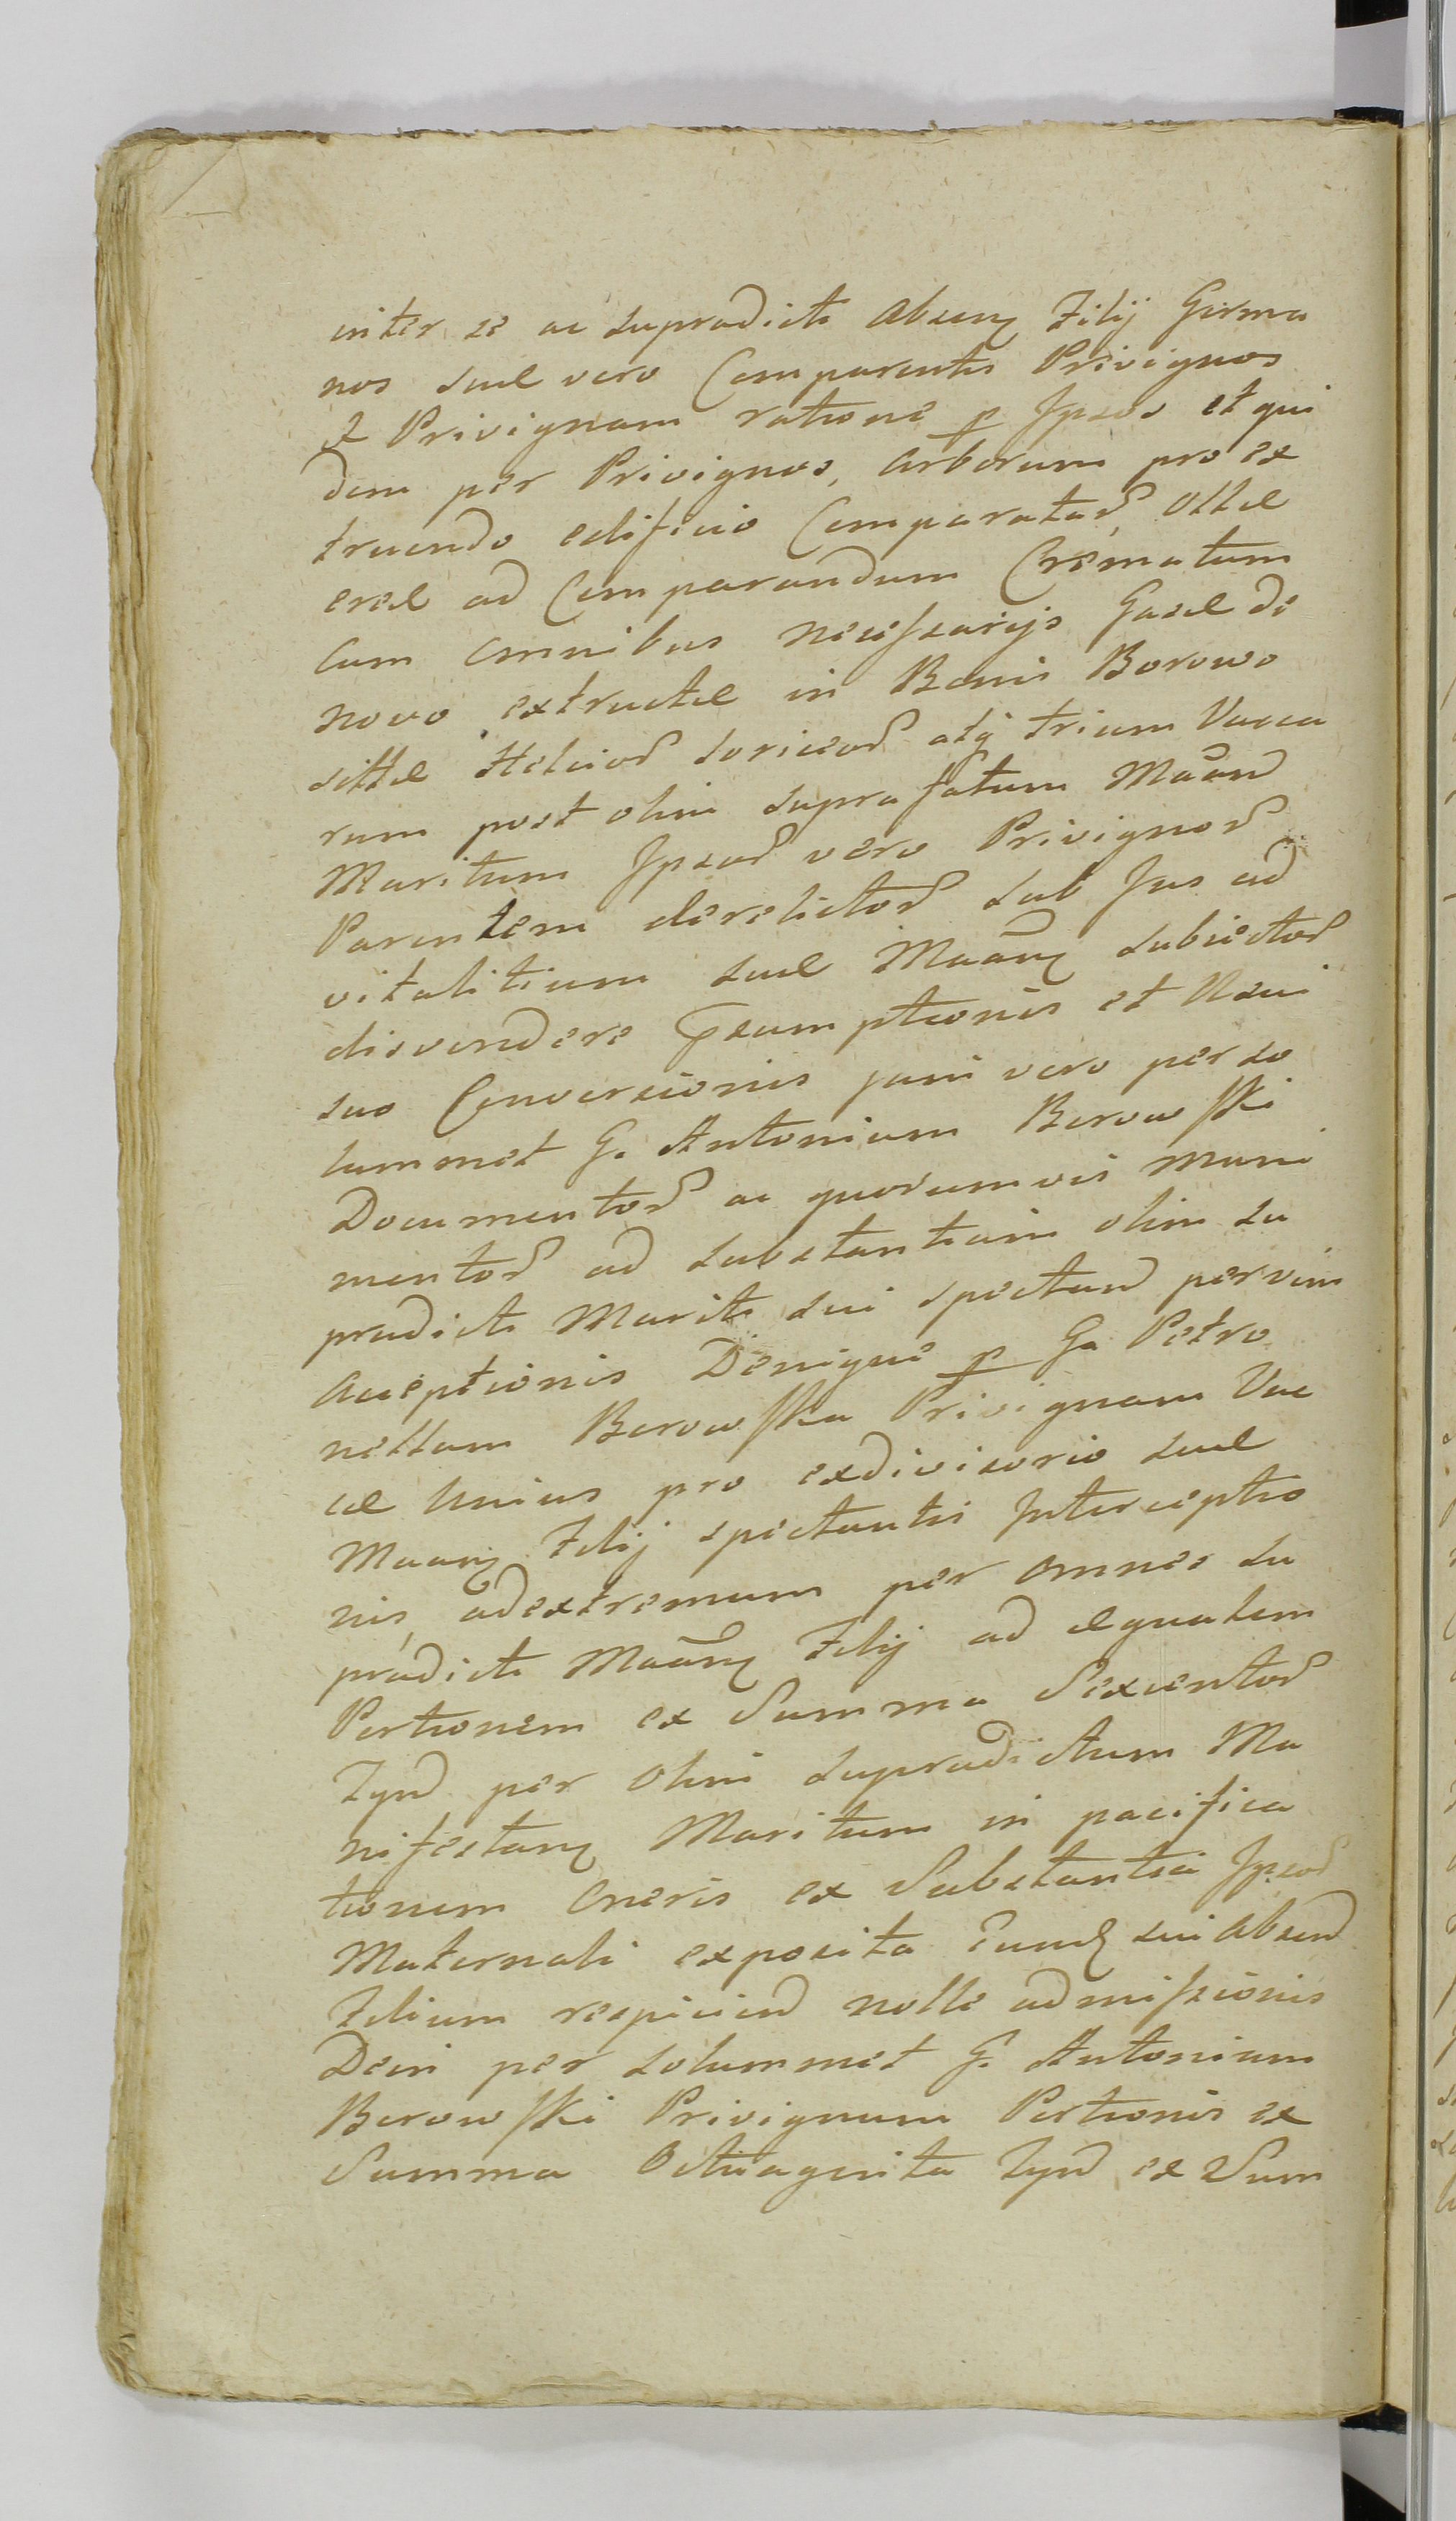 inter se ac supradicti Absens Filij Germa
nos suæ vero Comparentis Privignos
et Privignam ratione p Ipsos et qui
dem per Privignos, Arborum pro ex
truendo edificio Comparatar, Ollæ
ereæ ad Comparandum Crematum
Cum omnibus necessarijs Casæ de
novo extructæ in Bonis Borowo
sittæ atq trium Vacca
rum post olim suprafatum Maand
Maritum Ipsor vero Privignor
Parentem derelictor sub Jus ad
vitalitium suæ Maans subiector
disvendere Psumptionis et Usui
suo Conversionis jam vero per so
lummet G. Antonium Borowski
Documentor ac quorumvis muni
mentor ad substantiam olim su
pradicti Mariti sui spectand pervim
Acceptionis Denique p G. Petro
nellam Borowska Privignam Vac
cæ Unius pro exdivisorio suæ
Maans Filij spectantis Interceptio
nis, adextremum per omnes su
pradicti Maans Filij ad æqualem
Portionem ex Summa Sexcentor
Fynd per olim supradictum Ma
nifestans Maritum in pacifica
tionem Oneris ex Substantia Ipsor
Maternali exposita Eund sui Absend
Filium respiciend nolle admissionis
Dein per solummet G. Antonium
Borowski Privignum Portionis ex
Summa Octuaginta Fynd ex Sum